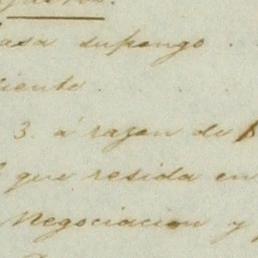 asa supongo.
3. á razon de
que resida en
Negociacion y